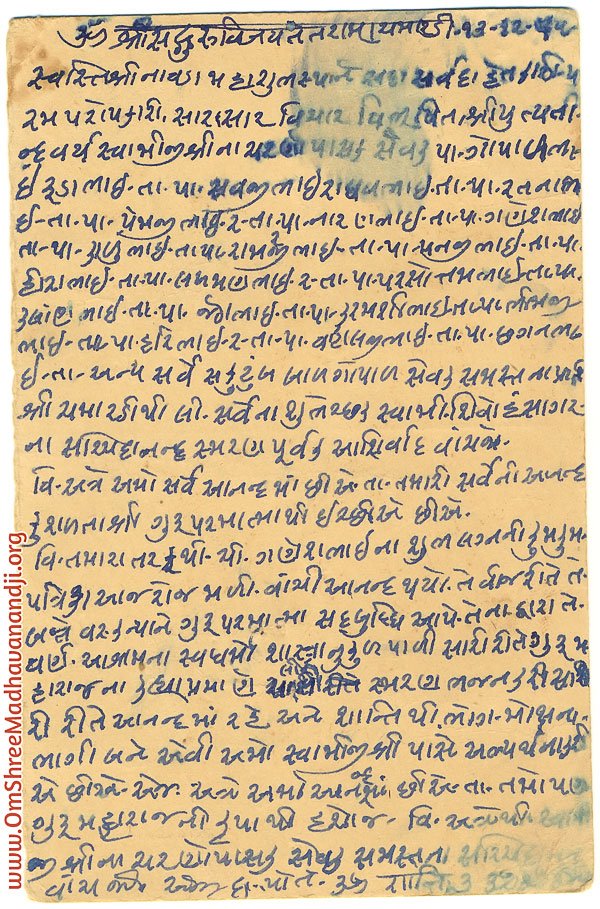 ૐ શ્રી સદ્ગુરૂ વિજયતેતરામ્ ચમારડી. ૧૩-૧૨-
સ્વસ્તિશ્રી નાવડા મહાશુભસ્થાને સદા સર્વદા
રમ પરોપકારી. સારાસાર વિચાર વિભૂષિત. શ્રીયુત્ યતી-
ન્દ્રવર્ય સ્વામીજીશ્રીના ચરણોપાસક સેવક પા. ગોપાળભા
ઈ રૂડાભાઈ. તા. પા. સવજીભાઈ રાઘવભાઈ. તા. પા. રતનાભા
ઈ. તા. પા. પ્રેમજીભાઈ ૨. તા. પા. નારણભાઈ. તા. પા. ગણેશભાઈ
તા. પા. ભાઈ. તા. પા. રામજીભાઈ. તા. પા. મનજીભાઈ. તા. પા.
હીરાભાઈ. તા. પા. લખમણભાઈ. ૨. તા. પા. પરસોતમભાઈ. તા. પા.
ભાઈ. તા. પા. જેઠાભાઈ. તા. પા. કરમશીભાઈ. તા. પા. ભીમજી
ભાઈ. તા. પા. હરિભાઈ. ૨. તા. પા. ભાઈ. તા. પા. છગનભા
ઈ. તા. અન્ય સર્વે સકુટુંબ બાળગોપાળ સેવક સમસ્તના પ્રતિ
શ્રી ચમારડીથી લી. સર્વેના શુભેચ્છક સ્વામી. શિવોહંસાગર-
ના સચ્ચિદાનન્દ સ્મરણ પૂર્વક આશિર્વાદ વાંચશો.
વિ. અત્રે અમો સર્વે આનન્દમાં છીએ. તા. તમારી સર્વેની આનન્દ
કુશળતા શ્રી ગુરૂપરમાત્માથી ઈચ્છીએ છીએ.
વિ. તમારા તરફથી. ચી. ગણેશભાઈના શુભ લગ્નની કુમકુમ-
પત્રિકા આજરોજ મળી. વાંચી આનન્દ થયો. તેવીજ રીતે તે-
બન્ને વરકન્યાને ગુરૂપરમાત્મા સદ્બુદ્ધિ આપે. તેના દ્વારા તે-
વર્ણ. આશ્રમના સ્વધર્મો શાસ્ત્રાનુકુળ પાળી સારી રીતે ગુરૂમ
હારાજના કહ્યા પ્રમાણે સ્મરણ ભજન કરી સા
રી રીતે આનન્દમાં રહે અને શાન્તિથી. ભોગ-મોક્ષના-
ભાગી બને એવી અમો સ્વામીજીશ્રી પાસે અભ્યર્થના કરી
એ છીએ. એજ. અત્રે અમો આનંદમાં છીએ. તા. તમો પણ
ગુરૂમહારાજની કૃપાથી હશોજ. વિ. અત્રેથી
જીશ્રીના ચરણોપાસક સેવક સમસ્તના
વાંચશો. એજ દ. પોતે. ૐ શાન્તિ
www.OmShreeMadhavanandji.org